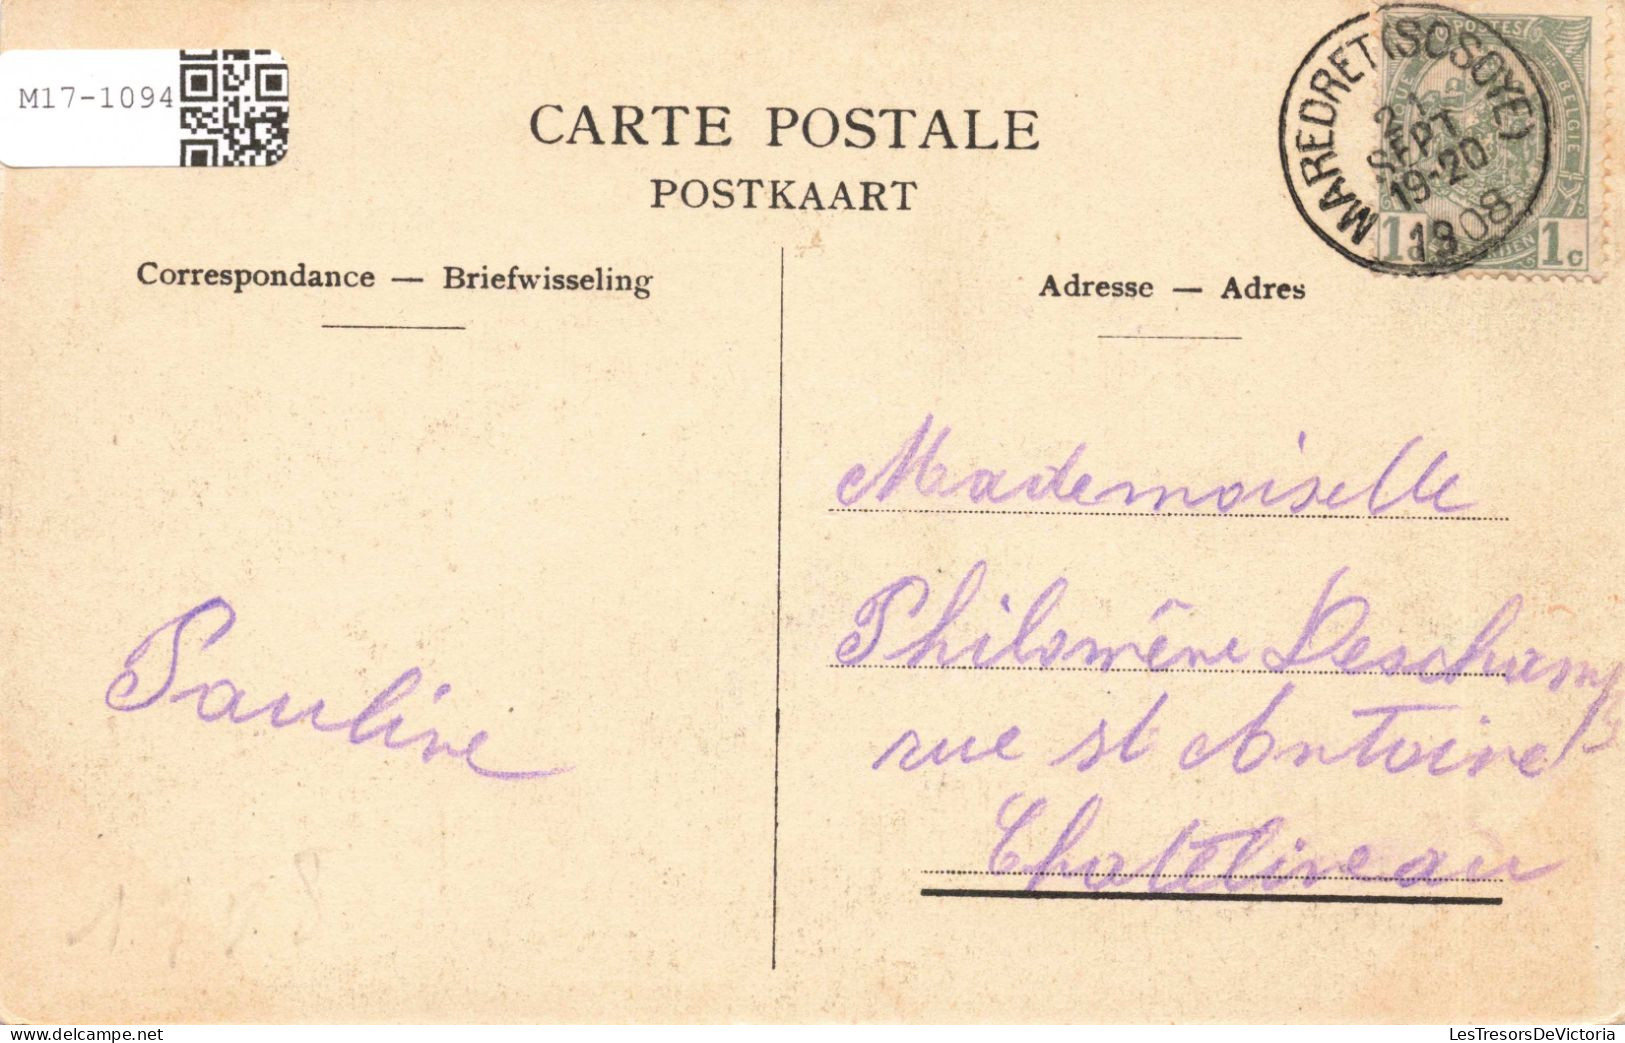 M17-1094
CARTE POSTALE
POSTKAART
MAREDRET (SOSOYE)
21
SEPT
19-20
1908
POSTES
BELGIE
1c 1c
Correspondance — Briefwisseling
Adresse — Adres
Mademoiselle
Philomène Deschamps
rue st Antoine
Chatelineau
Pauline
LesTresorsDeVictoria
www.delcampe.net